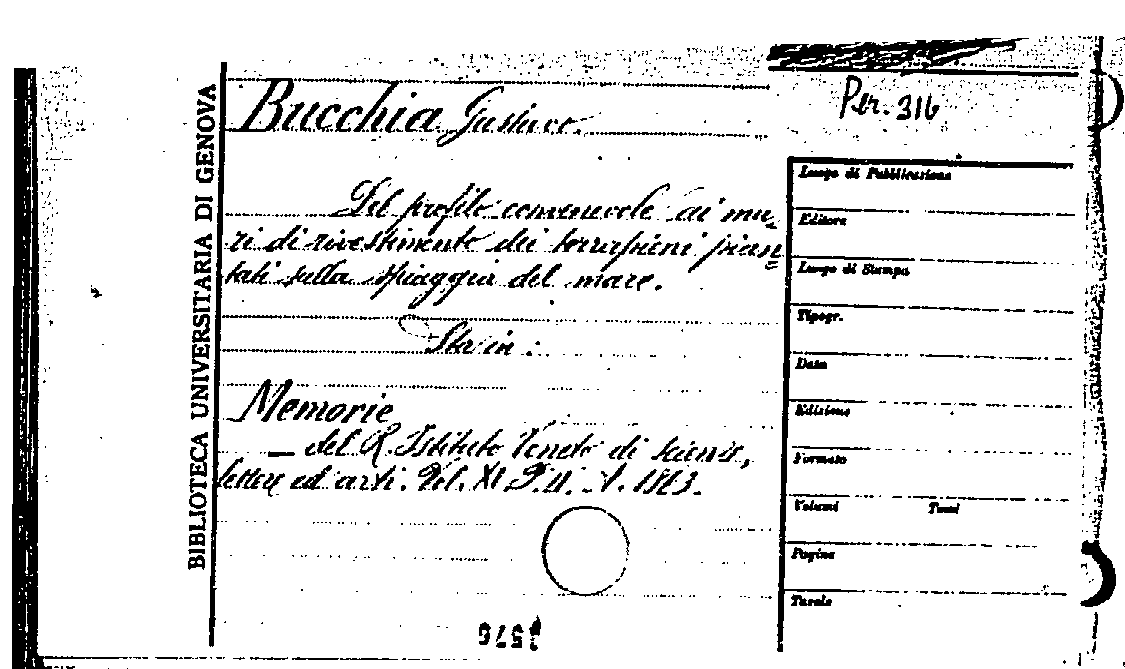 BIBLIOTECA UNIVERSITARIA DI GENOVA
Bucchia Gustavo.
Per. 316
Del profilo convenevole ai mu-
ri di rivestimento dei terrapieni pian=
tati sulla spiaggia del mare.
Sta in:
Memorie
— del R. Istituto Veneto di scienze,
lettere ed arti. Vol. XI P. II.
Luogo di Pubblicazione
Editore
Luogo di Stampa
Tipogr.
Data
Edizione
Formato
Volumi Tomi
Pagine
Tavole